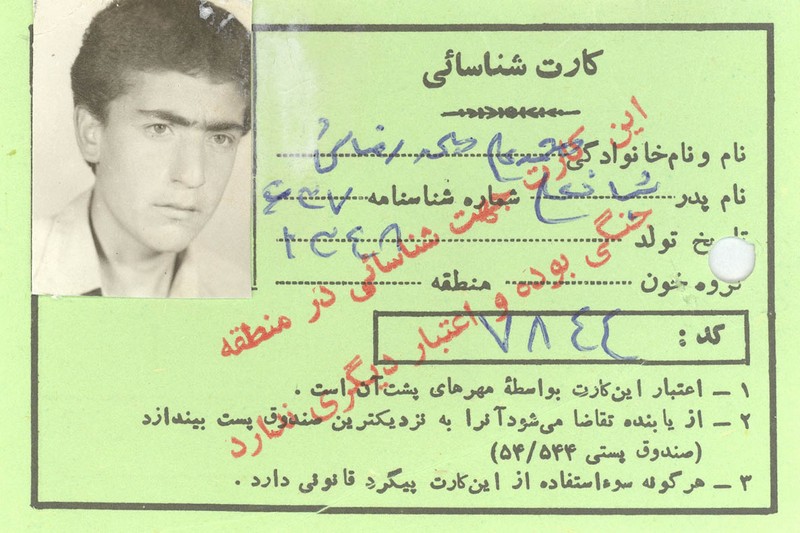 کارت شناسائی
نام و نام‌خانوادگی رضائی
نام پدر شماره شناسنامه ۶۳۷
تاریخ تولد ۱۳۴۸
گروه خون منطقه
کد : ۷۸۴۴
۱ ــ اعتبار این‌کارت بواسطهٔ مهرهای پشت‌آن است .
۲ ــ از یابنده تقاضا می‌شود آنرا به نزدیکترین صندوق پست بیندازد
(صندوق پستی ۵۴/۵۴۴)
۳ ــ هرگونه سوءاستفاده از این‌کارت پیگرد قانونی دارد .
این کارت جهت شناسائی در منطقه
جنگی بوده و اعتبار دیگری ندارد